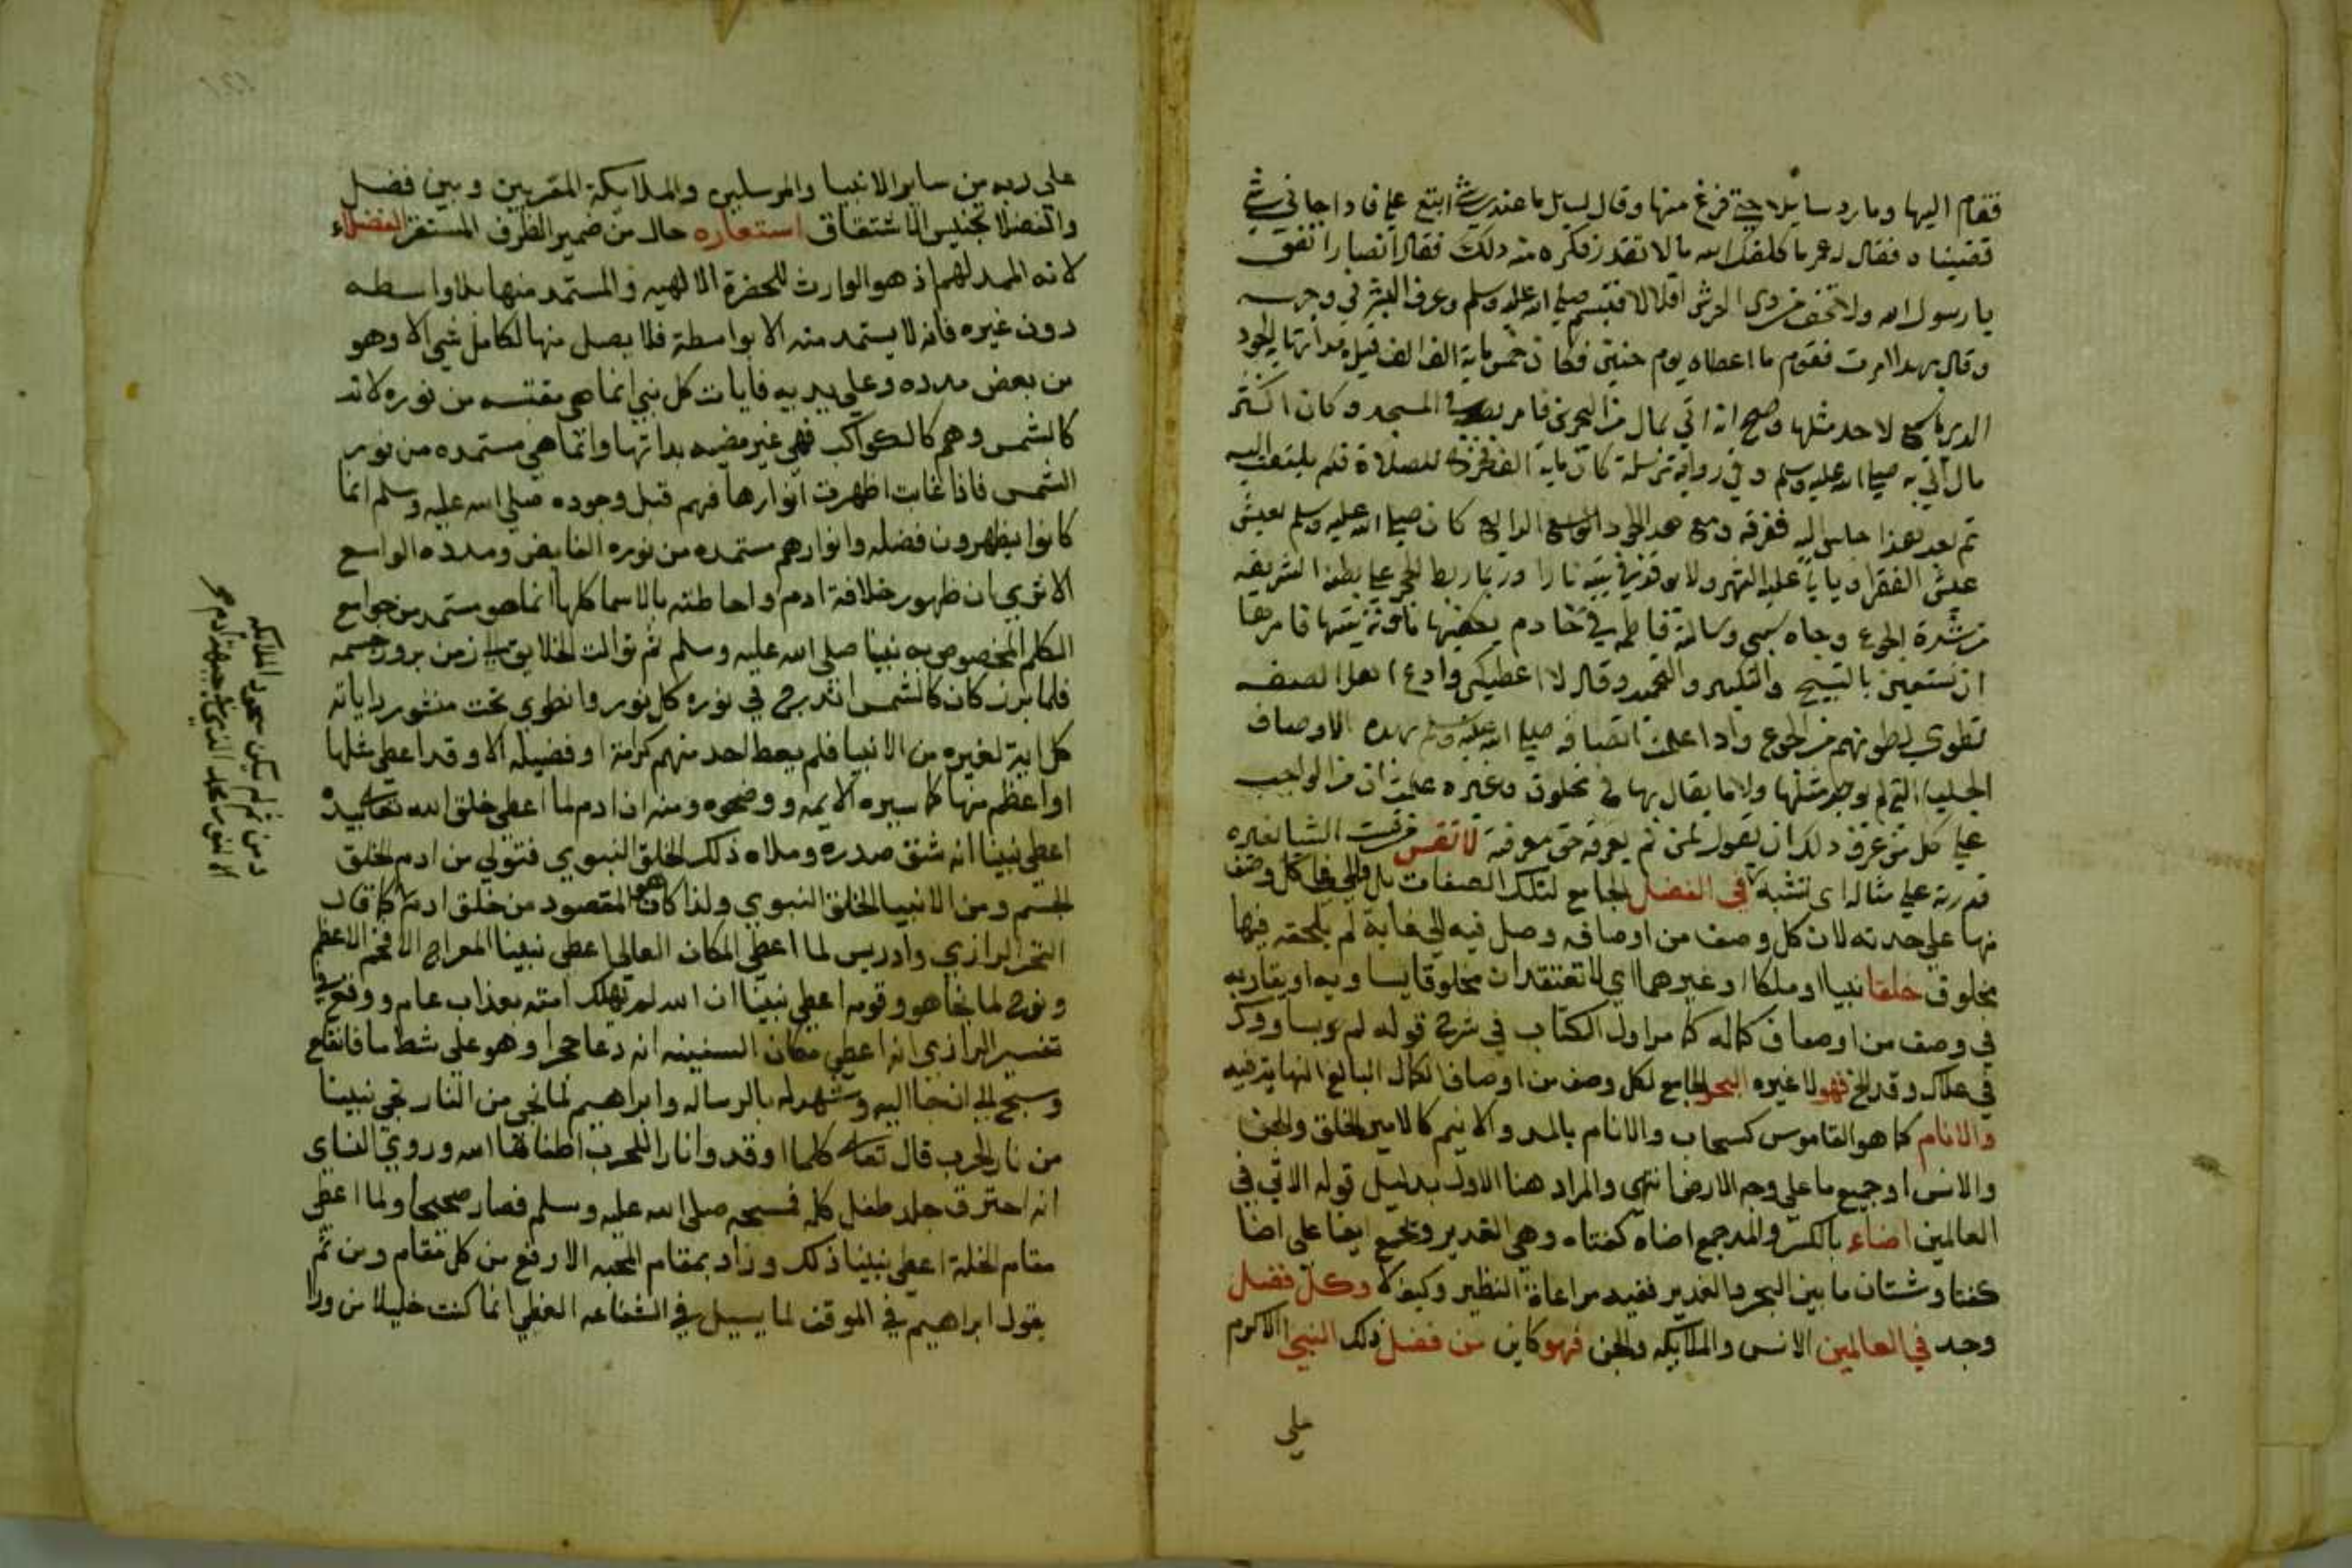 فقام اليها وما رد سايلا حتى فرغ منها وقال لسايل ما عندي شي ابتع علي فاذا جاني شي
قضيناه فقال له عمر ما كلفك الله ما لا تقدر فكره منه ذلك فقال انصاري انفق
يا رسول الله ولا تخف من ذي العرش اقلالا فتبسم صلى الله عليه وسلم وعرف البشر في وجهه
وقال بهذا امرت فقوم ما اعطاه يوم حنين فكان خمس ماية الف الف الجود
الذي لاحد مثلها وصح انه اتي بمال من البحرين فامر بصبه في المسجد وكان اكثر
مال اتي به صلى الله عليه وسلم وفي رواية مرسلة كان ماية الف فخرج للصلاة فلم يلتفت اليه
ثم بعد هذا جلس اليه ففرقه ومع هذا الجود الواسع كان صلى الله عليه وسلم يعيش
عيش الفقرا وياتي عليه الشهر ولا يوقد في بيته نارا وربما ربط الحجر على بطنه الشريفه
من شدة الجوع وجاه سبي وسالته فاطمة في خادم يكفيها مؤنة بيتها فامرها
ان تستعين بالتسبيح والتكبير والتحميد وقال لا اعطيك وادع اهل الصفه
تطوي بطونهم من الجوع واذا علمت اتصافه صلى الله عليه وسلم بهذه الاوصاف
الجليلة التي لم يوجد مثلها ولا ما يقال بها في مخلوق وغيره علمت ان من الواجب
على كل من عرف ذلك ان يقول لمن لم يعرفه حق معرفته لا تقس من قست الشا بغيره
قدرته على مثاله اى تشبه في الفضل الجامع لتلك الصفات بل في كل وصف
منها على حدته لان كل وصف من اوصافه وصل فيه الى غاية لم يلحقه فيها
مخلوق خلقا نبيا او ملكا او غيرهما اي لا تعتقد ان مخلوقا يساويه او يقاربه
في وصف من اوصاف كماله كما مر اول الكتاب في شرح قوله لم يساووك
في علاك وقد الخ فهو لا غيره البحر الجامع لكل وصف من اوصاف الكمال البالغ النهاية فيه
والانام كما هو القاموس كسحاب والانام بالمد والانيم كالامير الخلق والجن
والانس او جميع ما على وجه الارض انتهى والمراد هنا الاول بدليل قوله الاتي في
العالمين اضاء بالكسر والمد جمع اضاه كفتاه وهي الغدير وتجمع ايضا على اضا
كفتا وشتان ما بين البحر والغدير ففيه مراعاة النظير وكيف لا وكل فضل
وجد في العالمين الانس والملايكه والجن فهو كاين من فضل ذلك النبي الاكرم
على
على ربه من ساير الانبيا والمرسلين والملايكة المقربين وبين فضل
والفضلا تجنيس الاشتقاق استعاره حال من ضمير الظرف المستقر الفضلاء
لانه الممد لهم اذ هو الوارث للحضرة الالهيه والمستمد منها بلا واسطه
دون غيره فانه لا يستمد منه الا بواسطة فلا يصل منها لكامل شي الا وهو
من بعض مدده وعلى يديه فايات كل نبي انما هي مقتبسه من نوره لانه
كالشمس وهم كالكواكب فهي غير مضيه بذاتها وانما هي مستمده من نور
الشمس فاذا غابت اظهرت انوارها فهم قبل وجوده صلى الله عليه وسلم انما
كانوا يظهرون فضله وانوارهم مستمده من نوره الفايض ومدده الواسع
الا ترى ان ظهور خلافة ادم واحاطته بالاسما كلها انما هو مستمد من جوامع
الكلم المخصوص به نبينا صلى الله عليه وسلم ثم توالت الخلايق الى زمن بروز جسمه
فلما برز كان كالشمس اندرج في نوره كل نور وانطوي تحت منشور اياته
كل اية لغيره من الانبيا فلم يعط احد منهم كرامة او فضيله الا وقد اعطي مثلها
او اعظم منها كما سبره الايمه ووضحوه ومنه ان ادم لما اعطي خلق الله تعالى بيده
اعطي نبينا انه شق صدره وملاه ذلك الخلق النبوي فتولي من ادم الخلق
الجسم ومن الانبيا الخلق النبوي ولذا كان هو المقصود من خلق ادم كما قال
الفخر الرازي وادريس لما اعطي المكان العالي اعطي نبينا المعراج الافخم الاعظم
ونوح لما نجا هو وقومه اعطي نبينا ان الله لم يهلك امته بعذاب عام ووقع في
تفسير الرازي انه اعطي مكان السفينه انه دعا حجرا وهو على شط ما فانقلع
وسبح الى ان جا اليه وشهد له بالرساله وابراهيم لما نجي من النار نجي نبينا
من نار الحرب قال تعالى كلما اوقدوا نارا للحرب اطفاها الله وروي النساي
انه احترق جلد طفل كله فمسحه صلى الله عليه وسلم فصار صحيحا ولما اعطي
مقام الخلة اعطي نبينا ذلك وزاد بمقام المحبه الارفع من كل مقام ومن ثم
يقول ابراهيم في الموقف لما يسيل في الشفاعه العظمي انما كنت خليلا من ورا
ومن ثم لم يكن سجود الملايكه
الا لنور محمد الذي في جبهة ادم